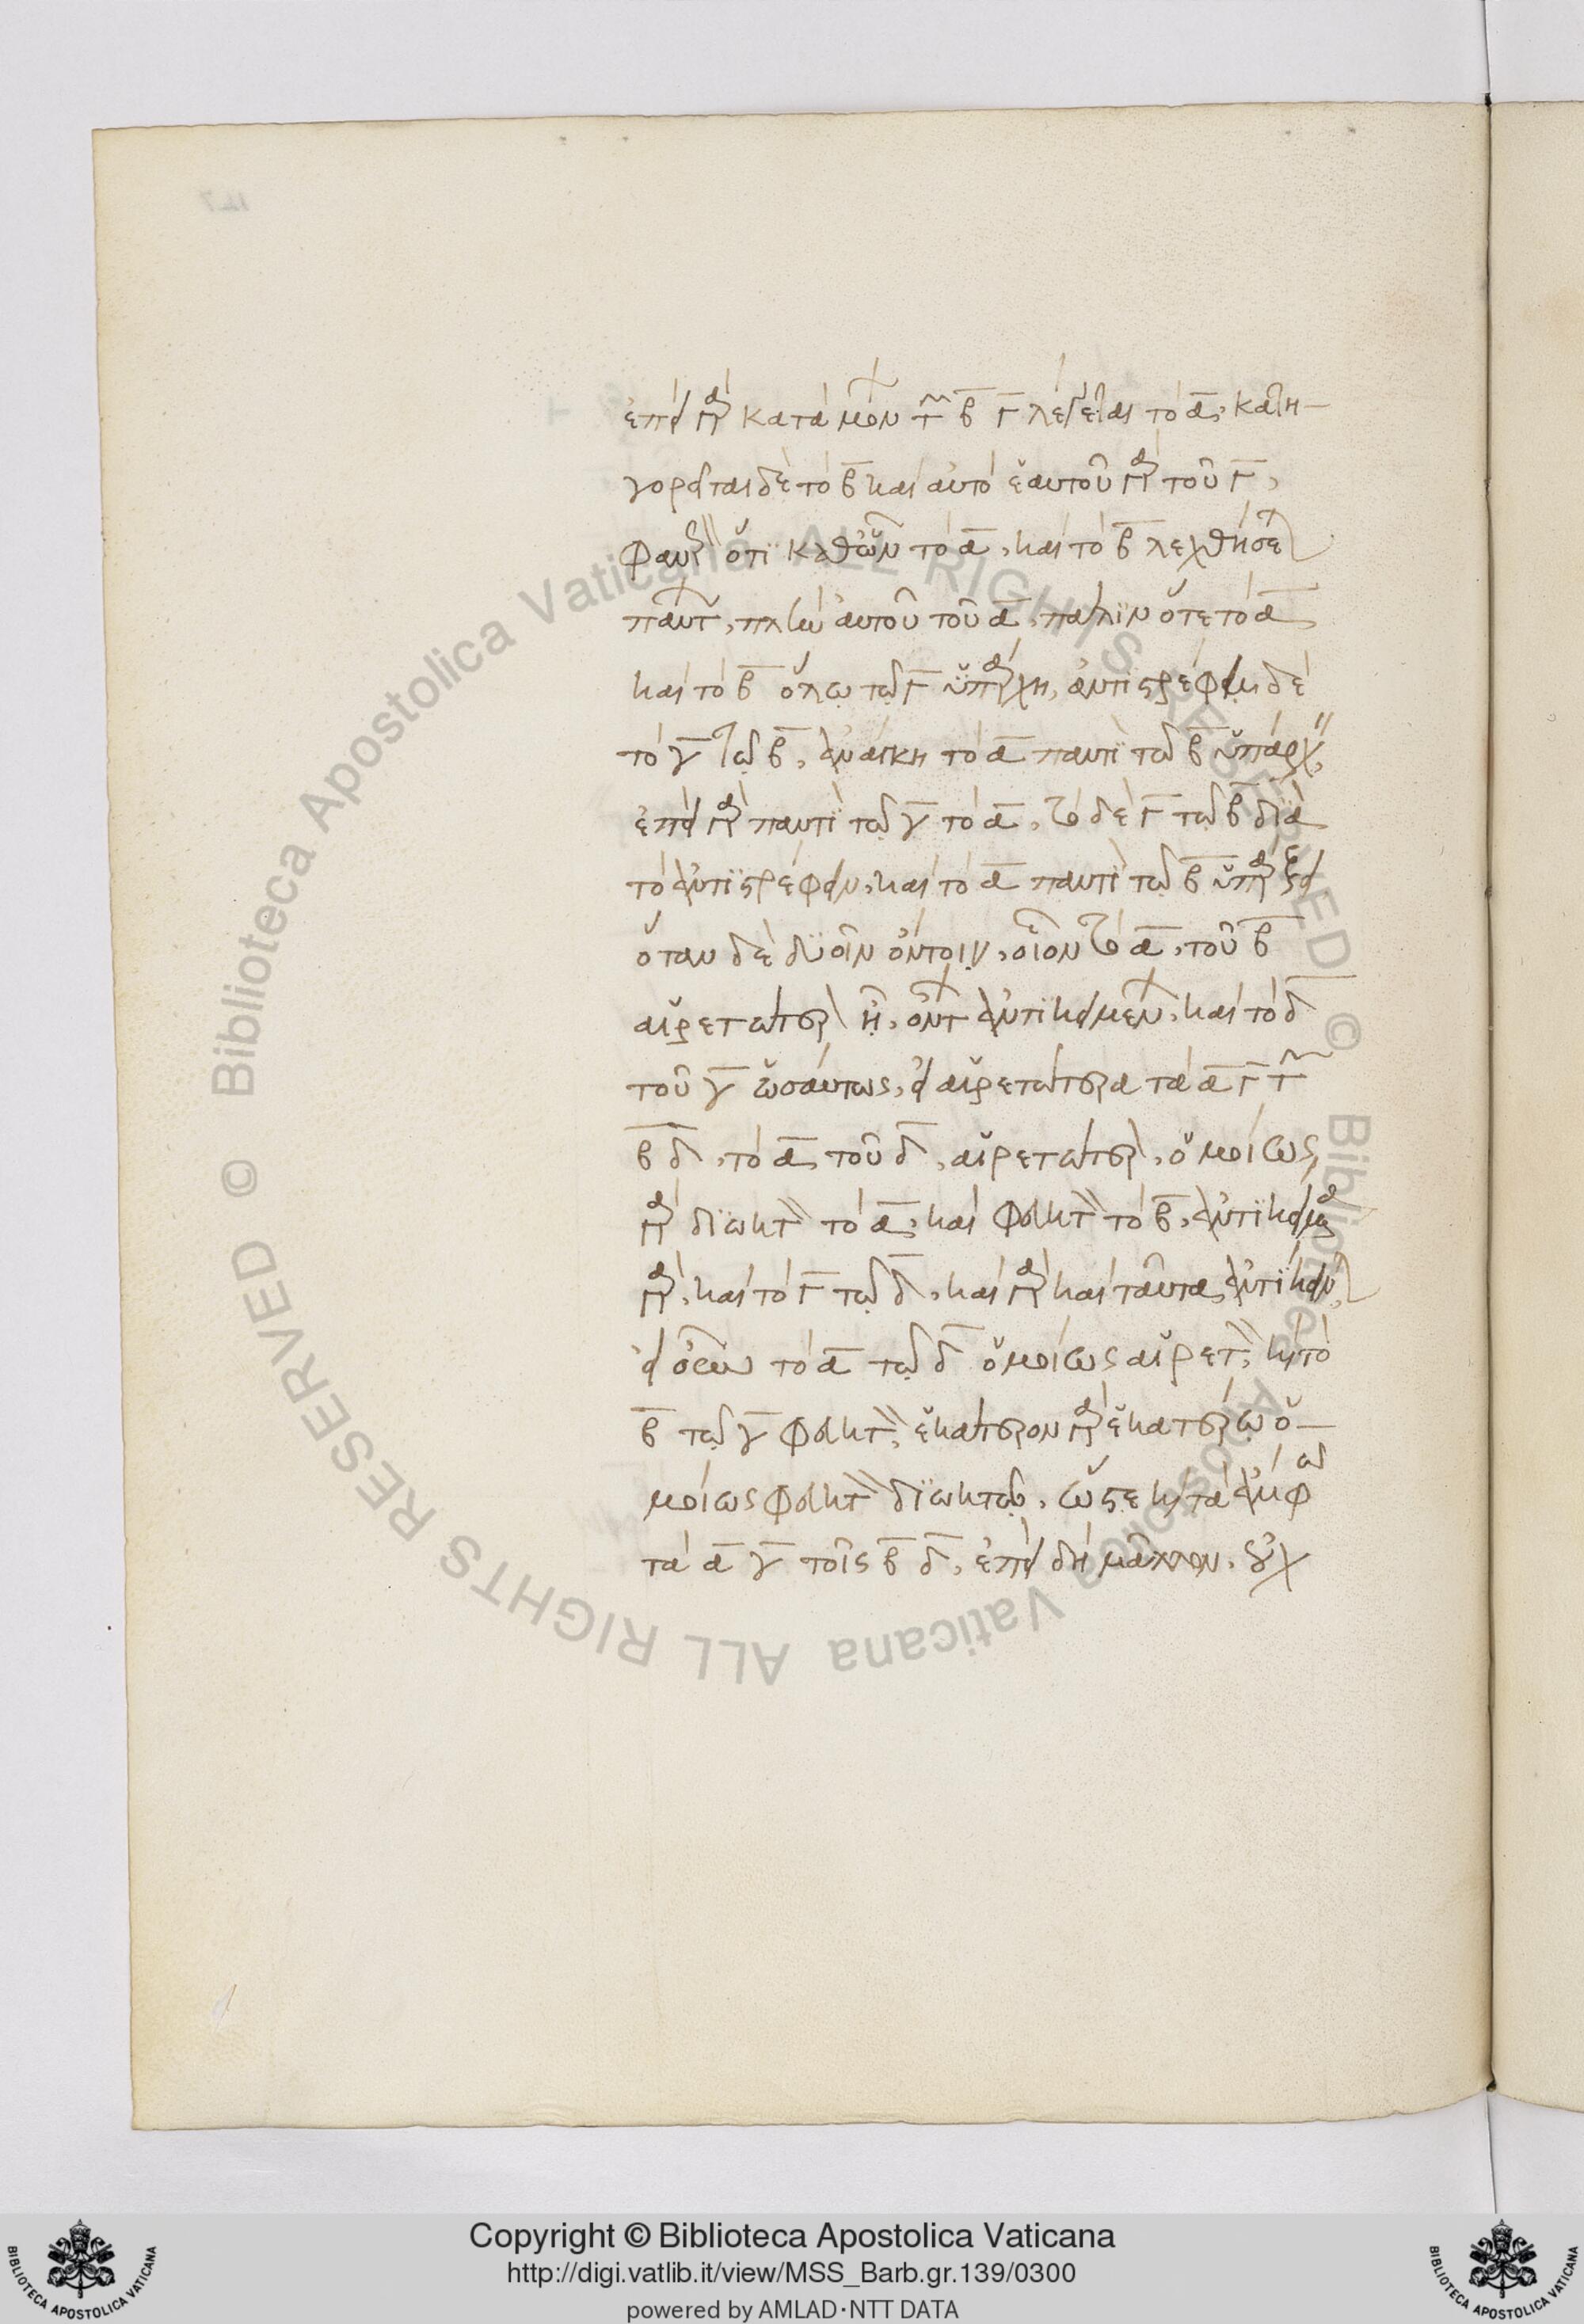 ἐπεὶ γὰρ κατὰ μόνων τῶν β̅ γ̅ λέγεται τὸ α̅, κατη-
γορεῖται δὲ τὸ β̅ καὶ αὐτὸ ἑαυτοῦ γὰρ τοῦ γ̅,
φανερὸν ὅτι καθ' ὧν τὸ α̅, καὶ τὸ β̅ λεχθήσεται
πάντων, πλὴν αὐτοῦ τοῦ α̅, πάλιν ὅτε τὸ α̅
καὶ τὸ β̅ ὅλῳ τῷ γ̅ ὑπάρχη, ἀντιστρέφει δὲ
τὸ γ̅ τῷ β̅, ἀνάγκη τὸ α̅ παντὶ τῷ β̅ ὑπάρχειν,
ἐπεὶ γὰρ παντὶ τῷ γ̅ τὸ α̅, τὸ δὲ γ̅ τῷ β̅ διὰ
τὸ ἀντιστρέφειν, καὶ τὸ α̅ παντὶ τῷ β̅ ὑπάρξει
ὅταν δὲ δυοῖν ὄντοιν, οἷον τὸ α̅, τοῦ β̅
αἱρετώτερον ᾖ, ὄντων ἀντικειμένων, καὶ τὸ δ̅
τοῦ γ̅ ὡσαύτως, εἰ αἱρετώτερα τὰ α̅ γ̅ τῶν
β̅ δ̅, τὸ α̅, τοῦ δ̅, αἱρετώτερον, ὁμοίως,
γὰρ διωκτὸν τὸ α̅, καὶ φευκτὸν τὸ β̅, ἀντικείμενα
γὰρ, καὶ τὸ γ̅ τῷ δ̅, καὶ γὰρ καὶ ταῦτα ἀντίκειται,
εἰ οὖν τὸ α̅ τῷ δ̅ ὁμοίως αἱρετὸν, καὶ τὸ
β̅ τῷ γ̅ φευκτὸν, ἑκάτερον γὰρ ἑκατέρῳ ὁ-
μοίως φευκτὸν διωκτῷ, ὥστε καὶ τὰ ἄμφω
τὰ α̅ γ̅ τοῖς β̅ δ̅, ἐπεὶ δὴ μᾶλλον, οὐχ
Copyright © Biblioteca Apostolica Vaticana
http://digi.vatlib.it/view/MSS_Barb.gr.139/0300
powered by AMLAD·NTT DATA